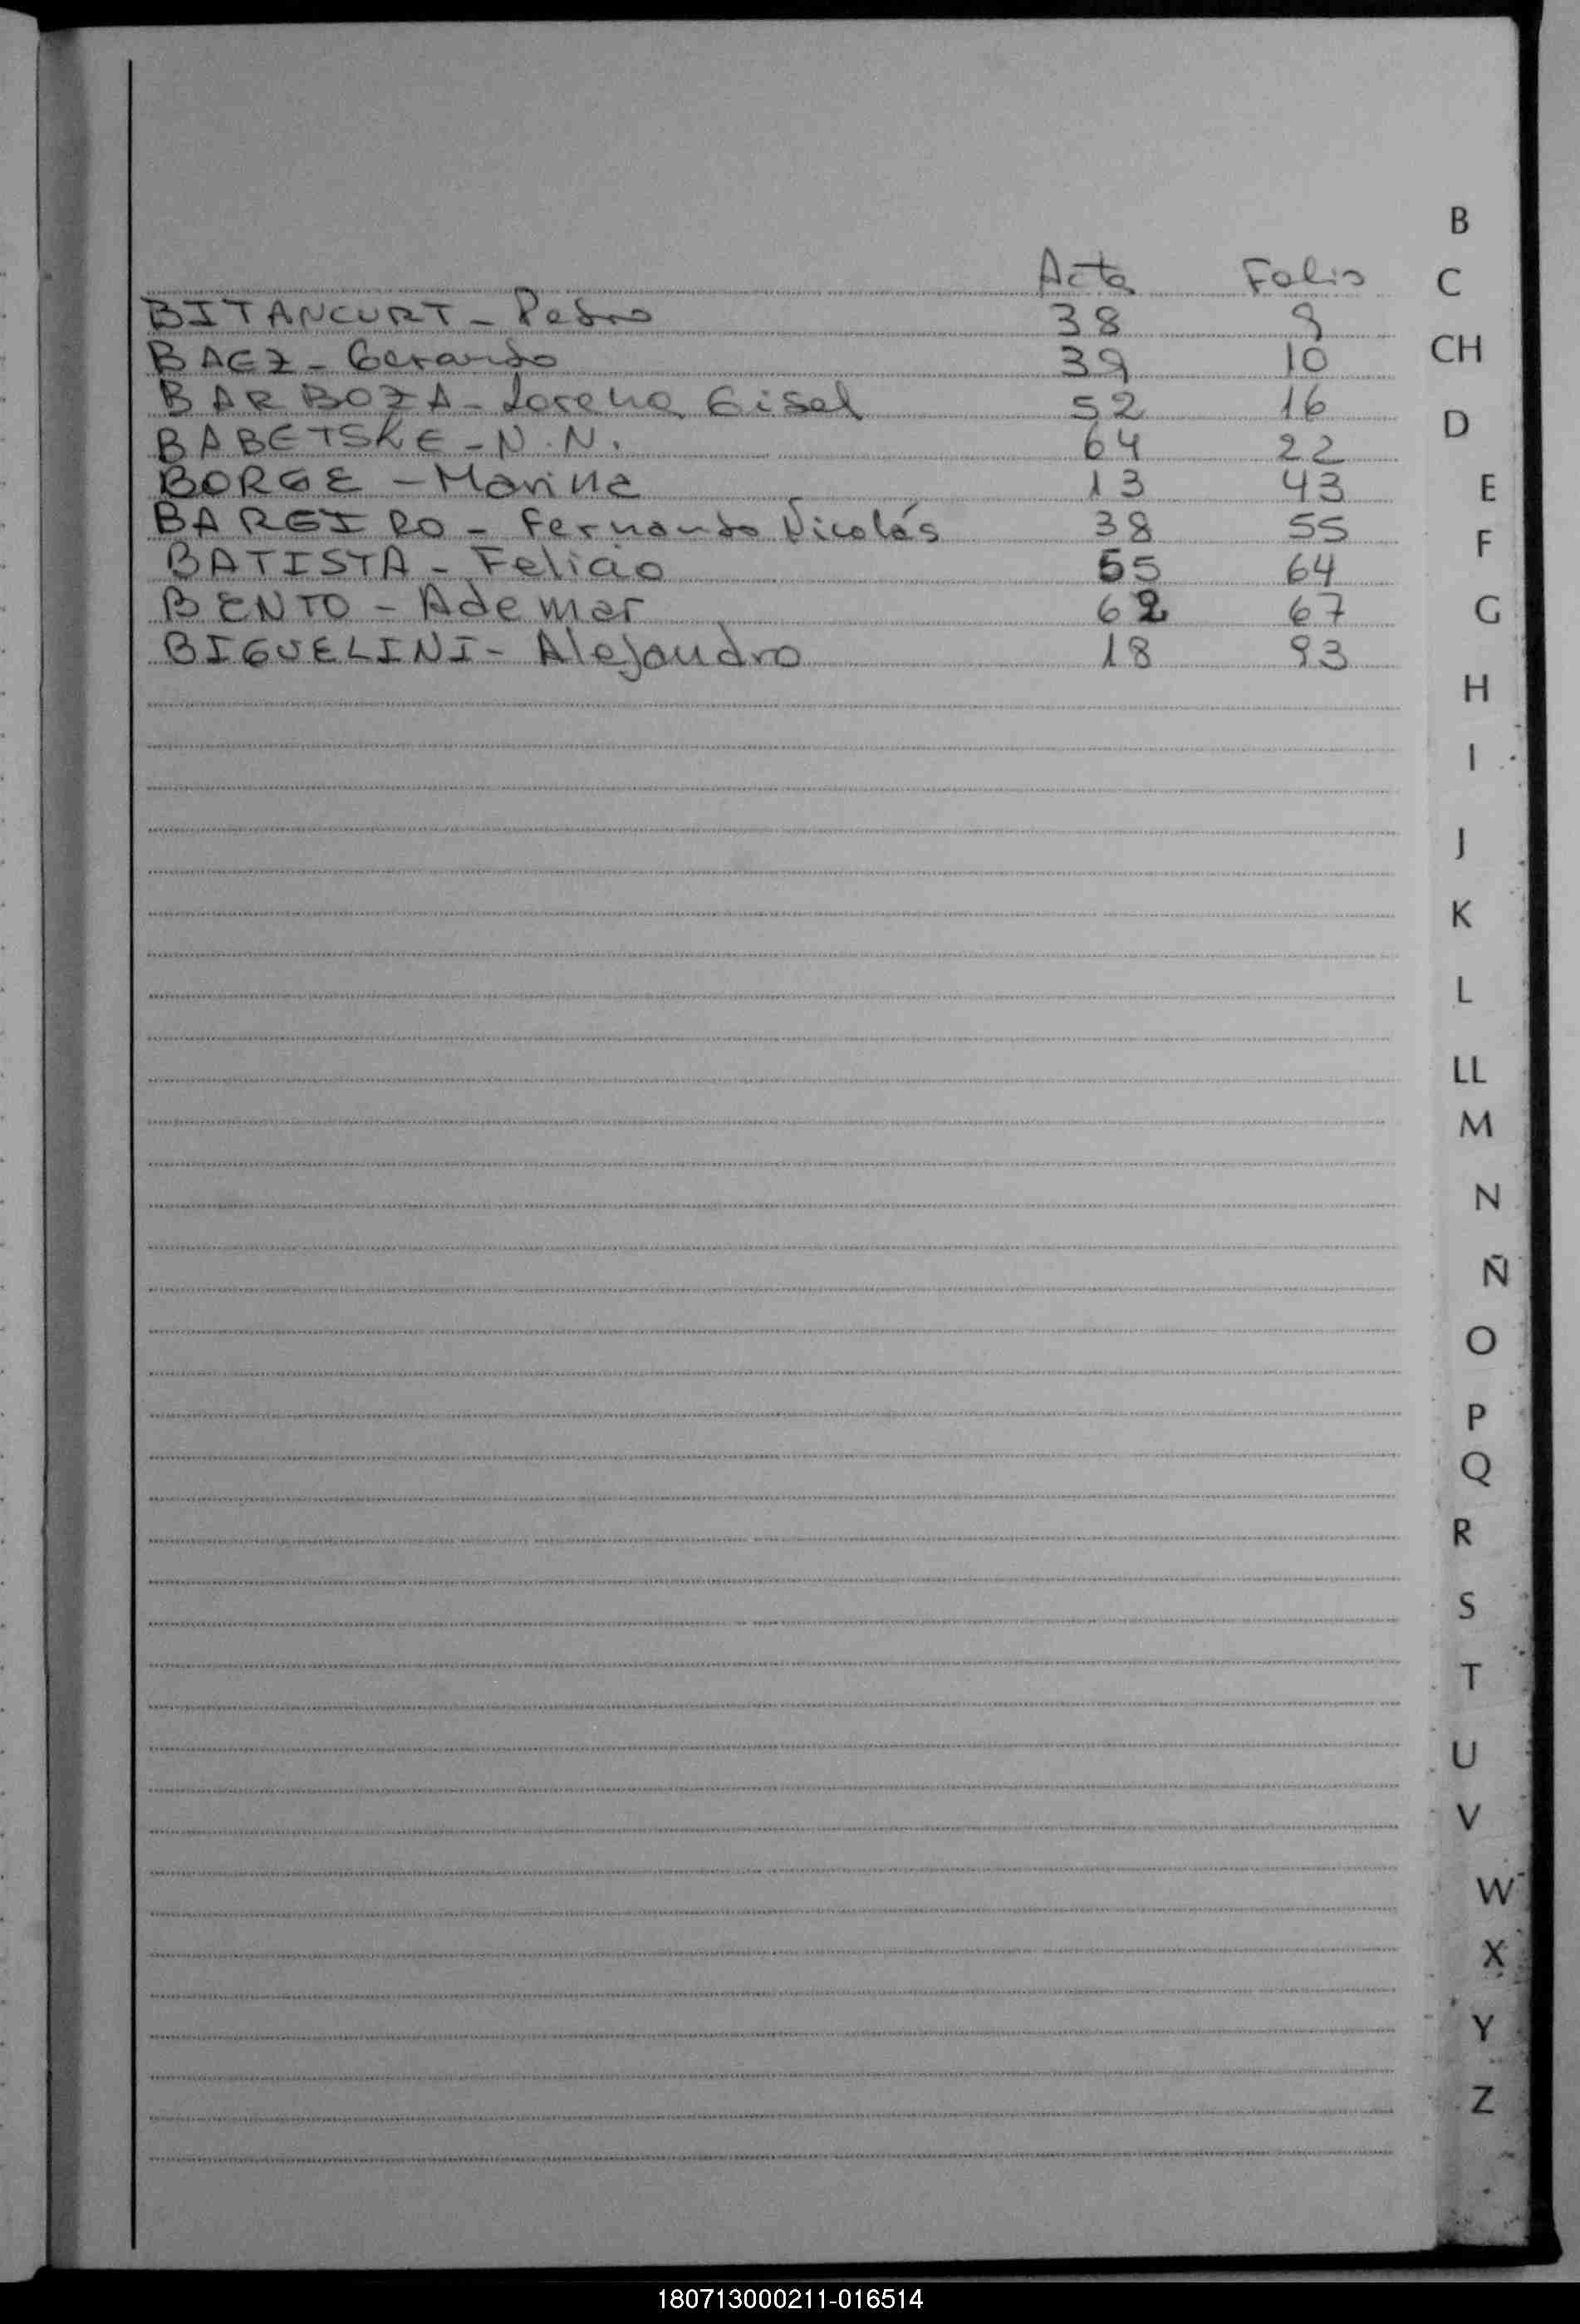 Acta Folio
BITANCURT - Pedro 38 9
BAEZ - Gerardo 39 10
BARBOZA - Lorena Gisel 52 16
BABETSKE - N.N. 64 22
BORGE - Marina 13 43
BARGIRO - Fernando Nicolás 38 55
BATISTA - Felicio 55 64
BENTO - Ademar 62 67
BIGUELINI - Alejandro 18 93
B
C
CH
D
E
F
G
H
I
J
K
L
LL
M
N
Ñ
O
P
Q
R
S
T
U
V
W
X
Y
Z
180713000211-016514